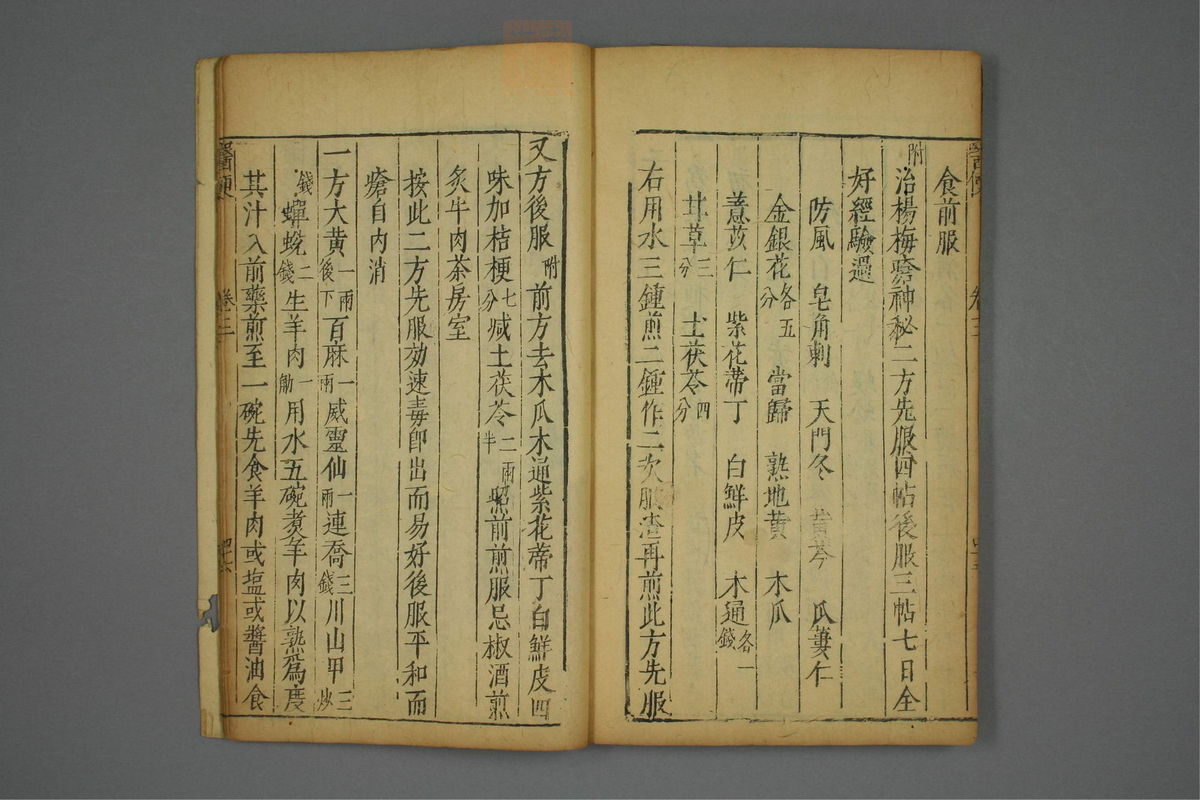 食前服
附治楊梅瘡神秘二方先服四帖後服三帖七日全
好經驗過
防風 皂角刺 天門冬 黃芩 瓜蔞仁
金銀花各五分 當歸 熟地黃 木瓜
薏苡仁 紫花蒂丁 白鮮皮 木通各一錢
甘草三分 土茯苓四分
右用水三鍾煎二鍾作二次服渣再煎此方先服
又方後服附前方去木瓜木通紫花蒂丁白鮮皮四
味加桔梗七分減土茯苓二兩半照前煎服忌椒酒煎
炙牛肉茶房室
按此二方先服効速毒卽出而易好後服平和而
瘡自內消
一方大黃一兩後下百麻一兩威靈仙一兩連喬三錢川山甲三
錢蟬蛻二錢生羊肉一觔用水五碗煮羊肉以熟爲度
其汁入前藥煎至一碗先食羊肉或塩或醬油食
醫便 卷三